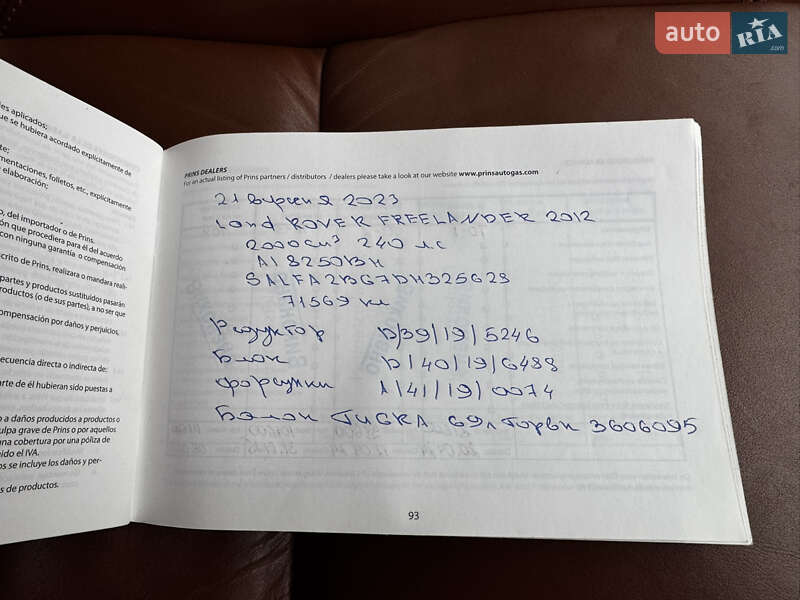 auto RIA .com
les aplicados;
que se hubiera acordado explícitamente de
te:
mentaciones, folletos, etc., explícitamente
elaboración;
o, del importador o de Prins.
ón que procediera para él del acuerdo
con ninguna garantía o compensación
crito de Prins, realizara o mandara reali-
partes y productos sustituidos pasarán
roductos (o de sus partes), a no ser que
ompensación por daños y perjuicios,
ecuencia directa o indirecta de:
arte de él hubieran sido puestas a
o a daños producidos a productos o
ulpa grave de Prins o por aquellos
una cobertura por una póliza de
ido el IVA.
os se incluye los daños y per-
s de productos.
PRINS DEALERS
For an actual listing of Prins partners / distributors / dealers please take a look at our website www.prinsautogas.com
21 вересня 2023
Land ROVER FREELANDER 2012
2000 см³ 240 лс
AI 8250BH
SALFA2BG7DH325628
71569 км
Редуктор D/39/19/5246
Блок D/40/19/6488
Форсунки A/41/19/0074
Балон 69л 3606095
93